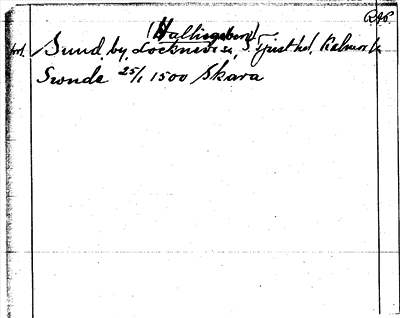 (Hallingeberg)
Sund, by, Locknevi s:n, S. Tjust hd, Kalmar l.
Swnde 25/1 1500 Skara